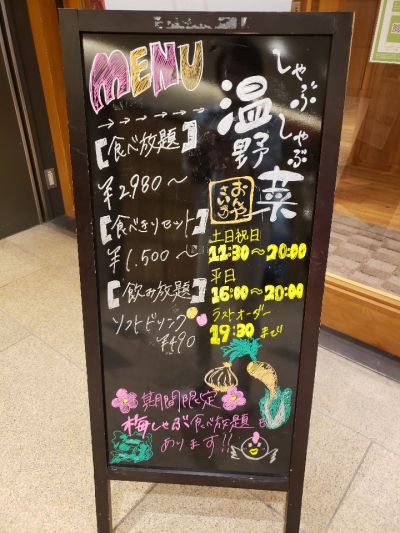 MENU
→→→→→→→
【食べ放題】
¥2,980〜
【食べきりセット】
¥1,500〜
【飲み放題】
ソフトドリンク
¥490
しゃぶしゃぶ
温野菜
おんや
さい
土日祝日
11:30〜20:00
平日
16:00〜20:00
ラストオーダー
19:30まで
期間限定
梅しゃぶ食べ放題も
あります!!